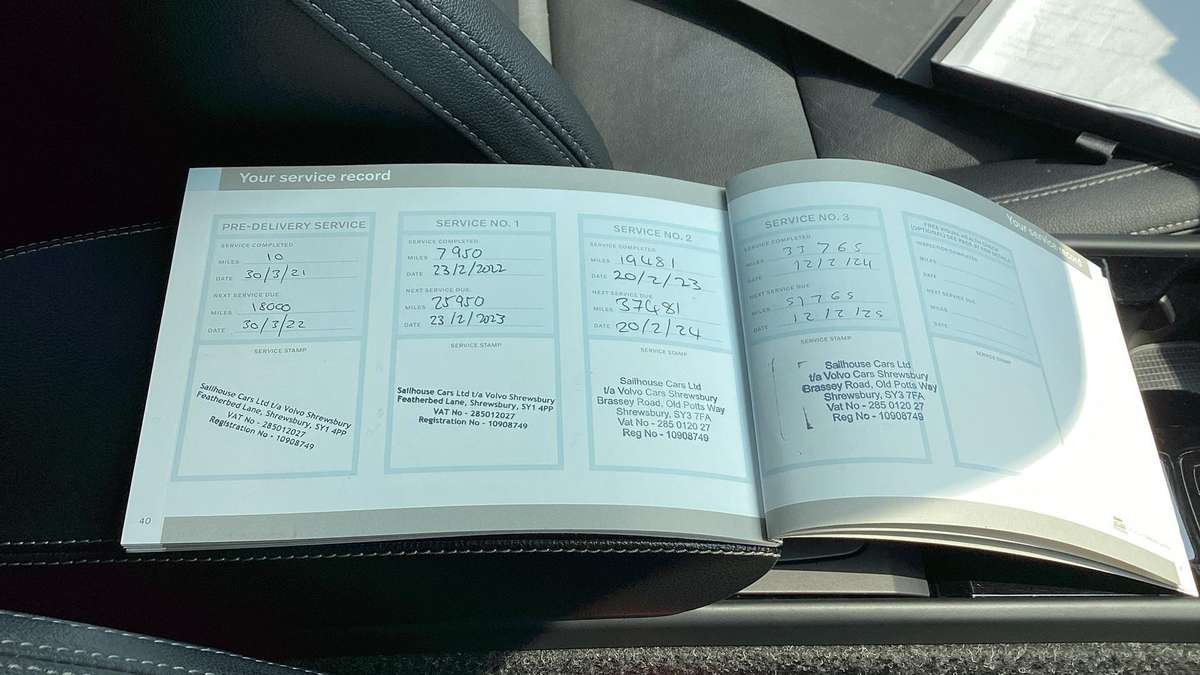 Your service record
PRE-DELIVERY SERVICE
SERVICE COMPLETED
MILES 10
DATE 30/3/21
NEXT SERVICE DUE
MILES 18000
DATE 30/3/22
SERVICE STAMP
Sailhouse Cars Ltd t/a Volvo Shrewsbury
Featherbed Lane, Shrewsbury, SY1 4PP
VAT No - 285012027
Registration No - 10908749
SERVICE NO. 1
SERVICE COMPLETED
MILES 7950
DATE 23/2/2022
NEXT SERVICE DUE
MILES 25950
DATE 23/2/2023
SERVICE STAMP
Sailhouse Cars Ltd t/a Volvo Shrewsbury
Featherbed Lane, Shrewsbury, SY1 4PP
VAT No - 285012027
Registration No - 10908749
SERVICE NO. 2
SERVICE COMPLETED
MILES 19481
DATE 20/2/23
NEXT SERVICE DUE
MILES 37481
DATE 20/2/24
SERVICE STAMP
Sailhouse Cars Ltd
t/a Volvo Cars Shrewsbury
Brassey Road, Old Potts Way
Shrewsbury, SY3 7FA
Vat No - 285 0120 27
Reg No - 10908749
40
Your service record
SERVICE NO. 3
SERVICE COMPLETED
MILES 33765
DATE 12/2/24
NEXT SERVICE DUE
MILES 51765
DATE 12/2/25
SERVICE STAMP
Sailhouse Cars Ltd
t/a Volvo Cars Shrewsbury
Brassey Road, Old Potts Way
Shrewsbury, SY3 7FA
Vat No - 285 0120 27
Reg No - 10908749
FREE VISUAL HEALTH CHECK
(OPTIONAL) SEE PAGE FOR DETAILS
INSPECTION COMPLETED
MILES
DATE
NEXT SERVICE DUE
MILES
DATE
SERVICE STAMP